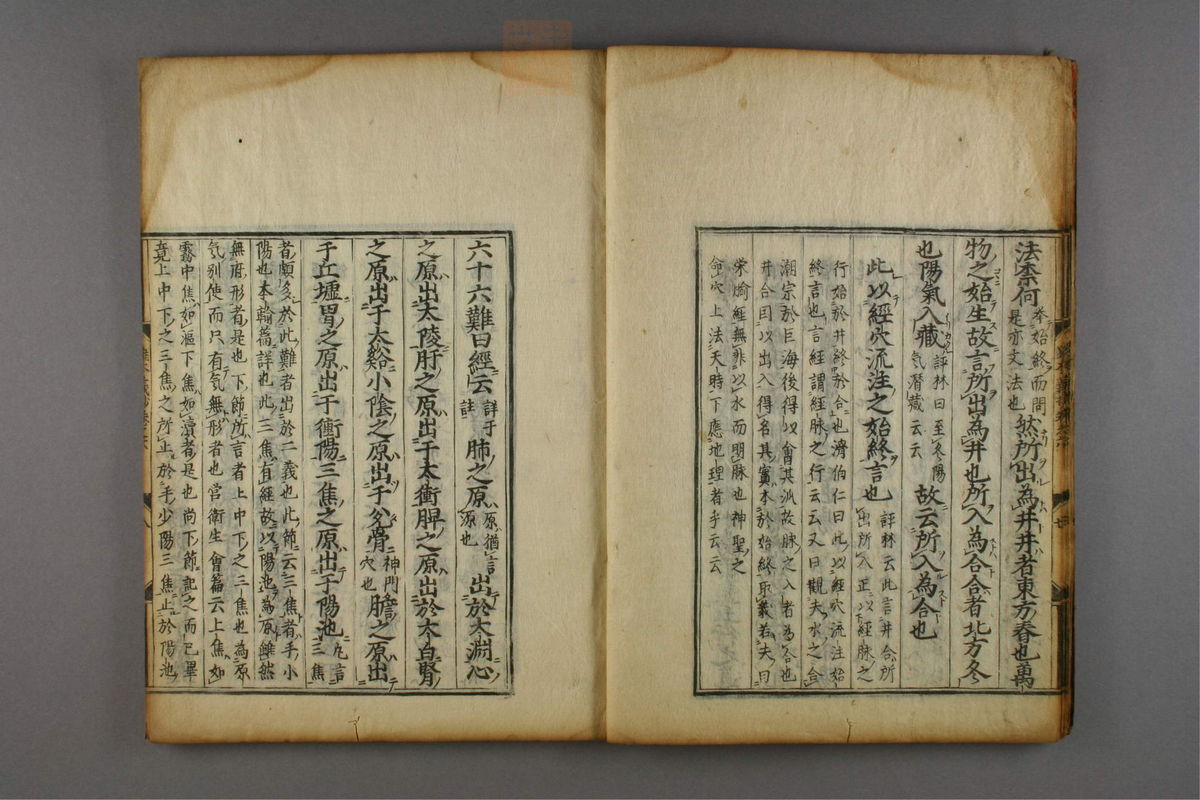 法柰何 本始終而問是亦文法也 然所出為井井者東方春也萬
物之始生故言所出為井也所入為合合者北方冬
也陽氣入藏 評林曰至冬陽気潛藏云云 故云所入為合也
此以經穴流注之始終言也 評林云此言井合所出所入正以經脉之
行始於井終於合也滑伯仁曰此以經穴流注始
終言也言經謂經脉之行云云又曰觀夫水之合
潮宗於巨海後得以會其派故脉之入者為合也
井合因以出入得名其實本於始終取義若夫曰
栄兪經無非以水而明脉也神聖之
命穴上法天時下應地理者乎云云
六十六難曰經云 詳于註 肺之原 原猶言源也 出於太淵心
之原出太陵肝之原出于太衝脾之原出於太白腎
之原出于太谿小陰之原出于兌骨 神門穴也 膽之原出
于丘墟胃之原出于衝陽三焦之原出于陽池 凡言三焦
者頗多於此難者出於二義也此節云三焦者手小
陽也本輸篇詳也此三焦有經故以陽池為原雖然
無府形者是也下節所言者上中下之三焦也為原
気别使而只有気無形者也営衛生會篇云上焦如
霧中焦如漚下焦如瀆者是也尚下節記之而已畢
竟上中下之三焦之所止於手少陽三焦止於陽池